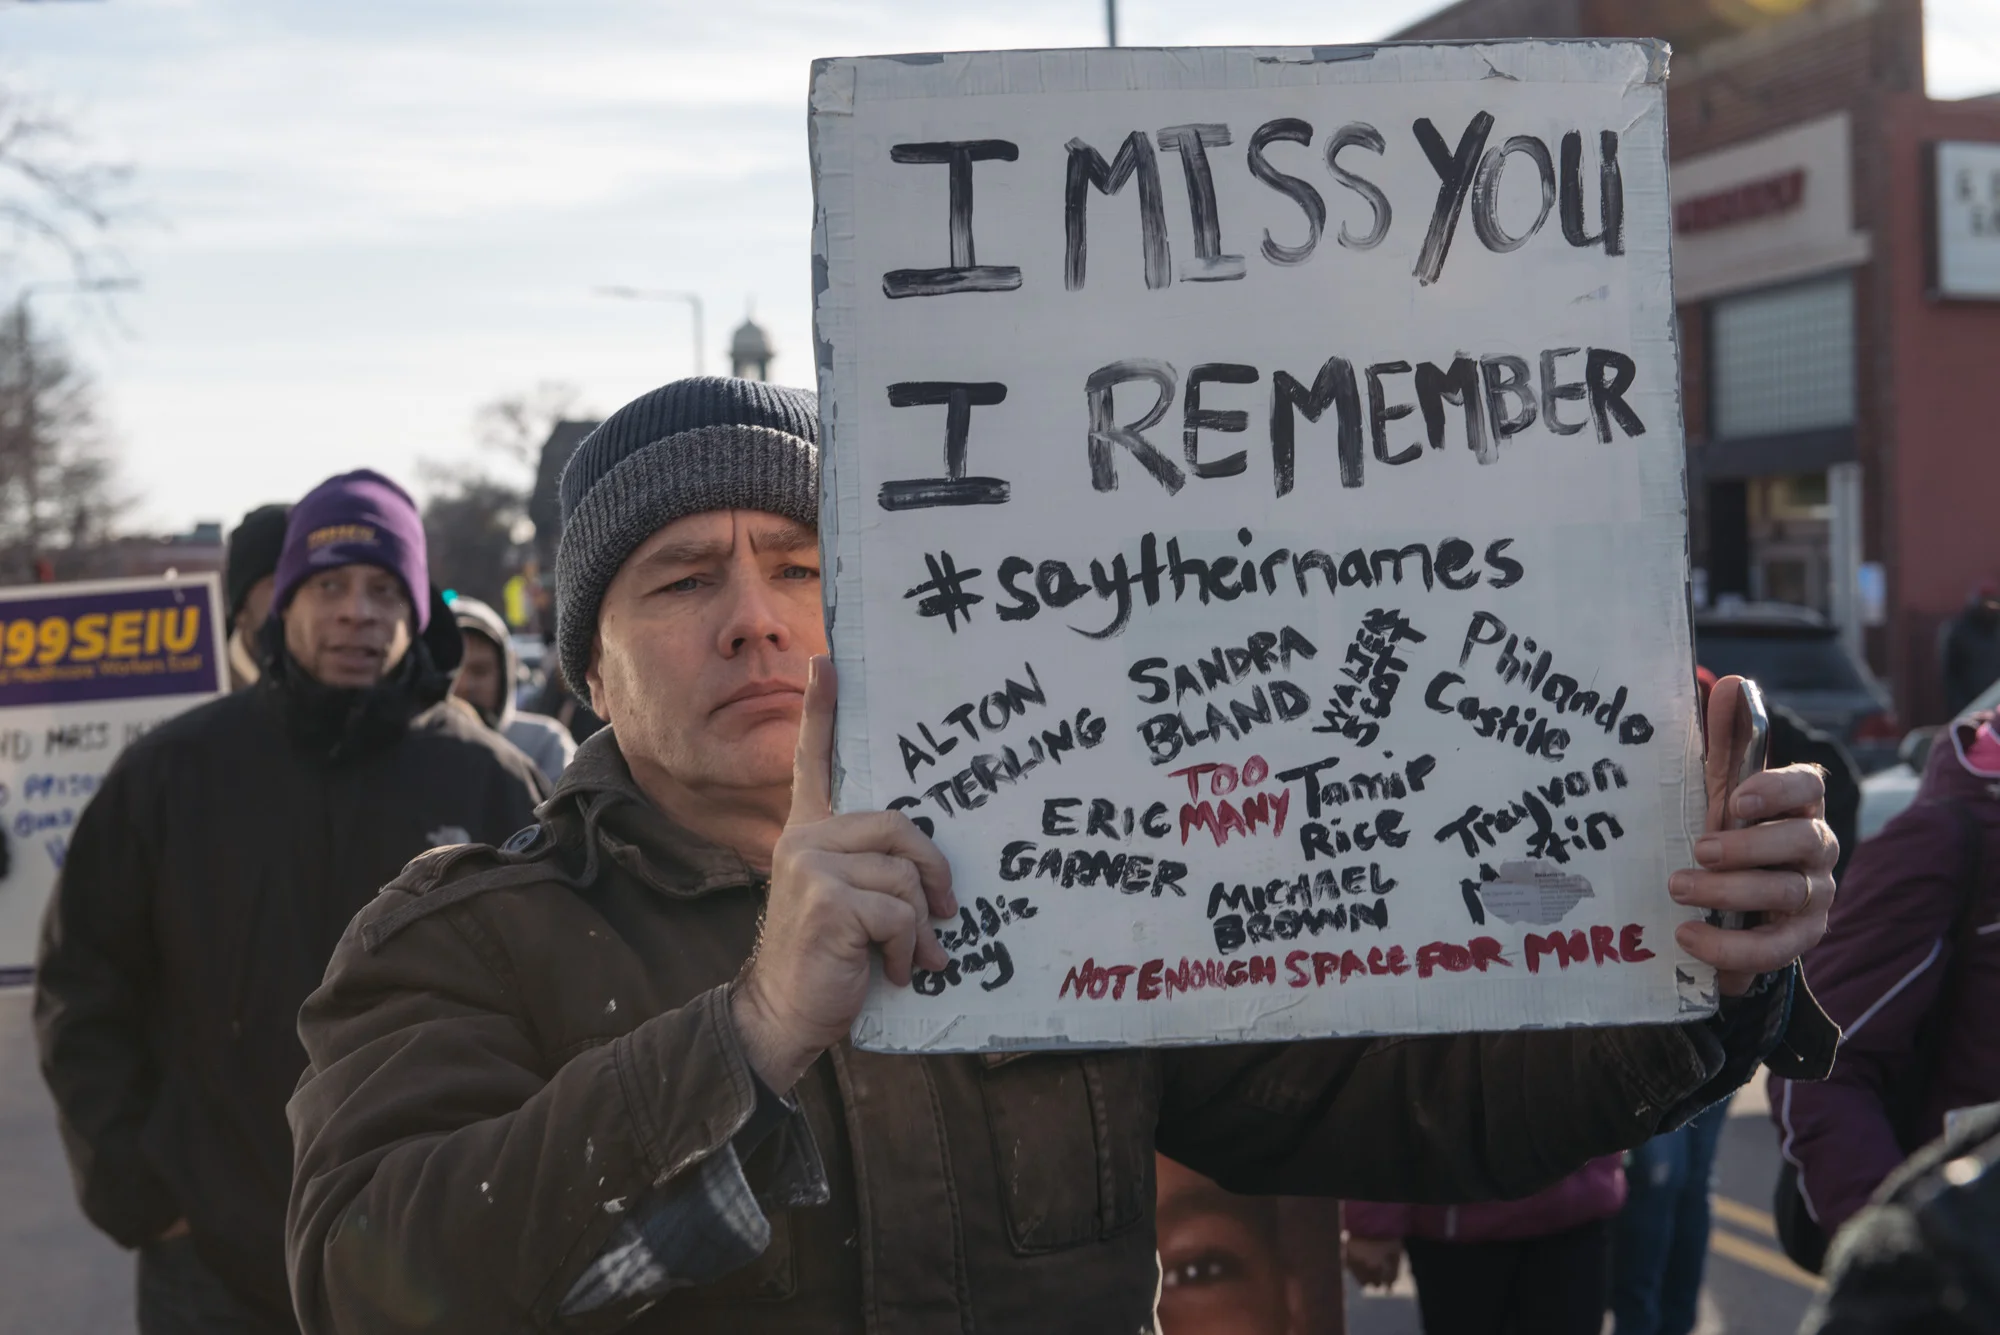 I MISS YOU
I REMEMBER
#saytheirnames
ALTON
STERLING
SANDRA
BLAND
WALTER
SCOTT
Philando
Castile
TOO
MANY
ERIC
GARNER
Tamir
Rice
Trayvon
MICHAEL
BROWN
Gray
NOT ENOUGH SPACE FOR MORE
199SEIU
Healthcare Workers East
1199SEIU